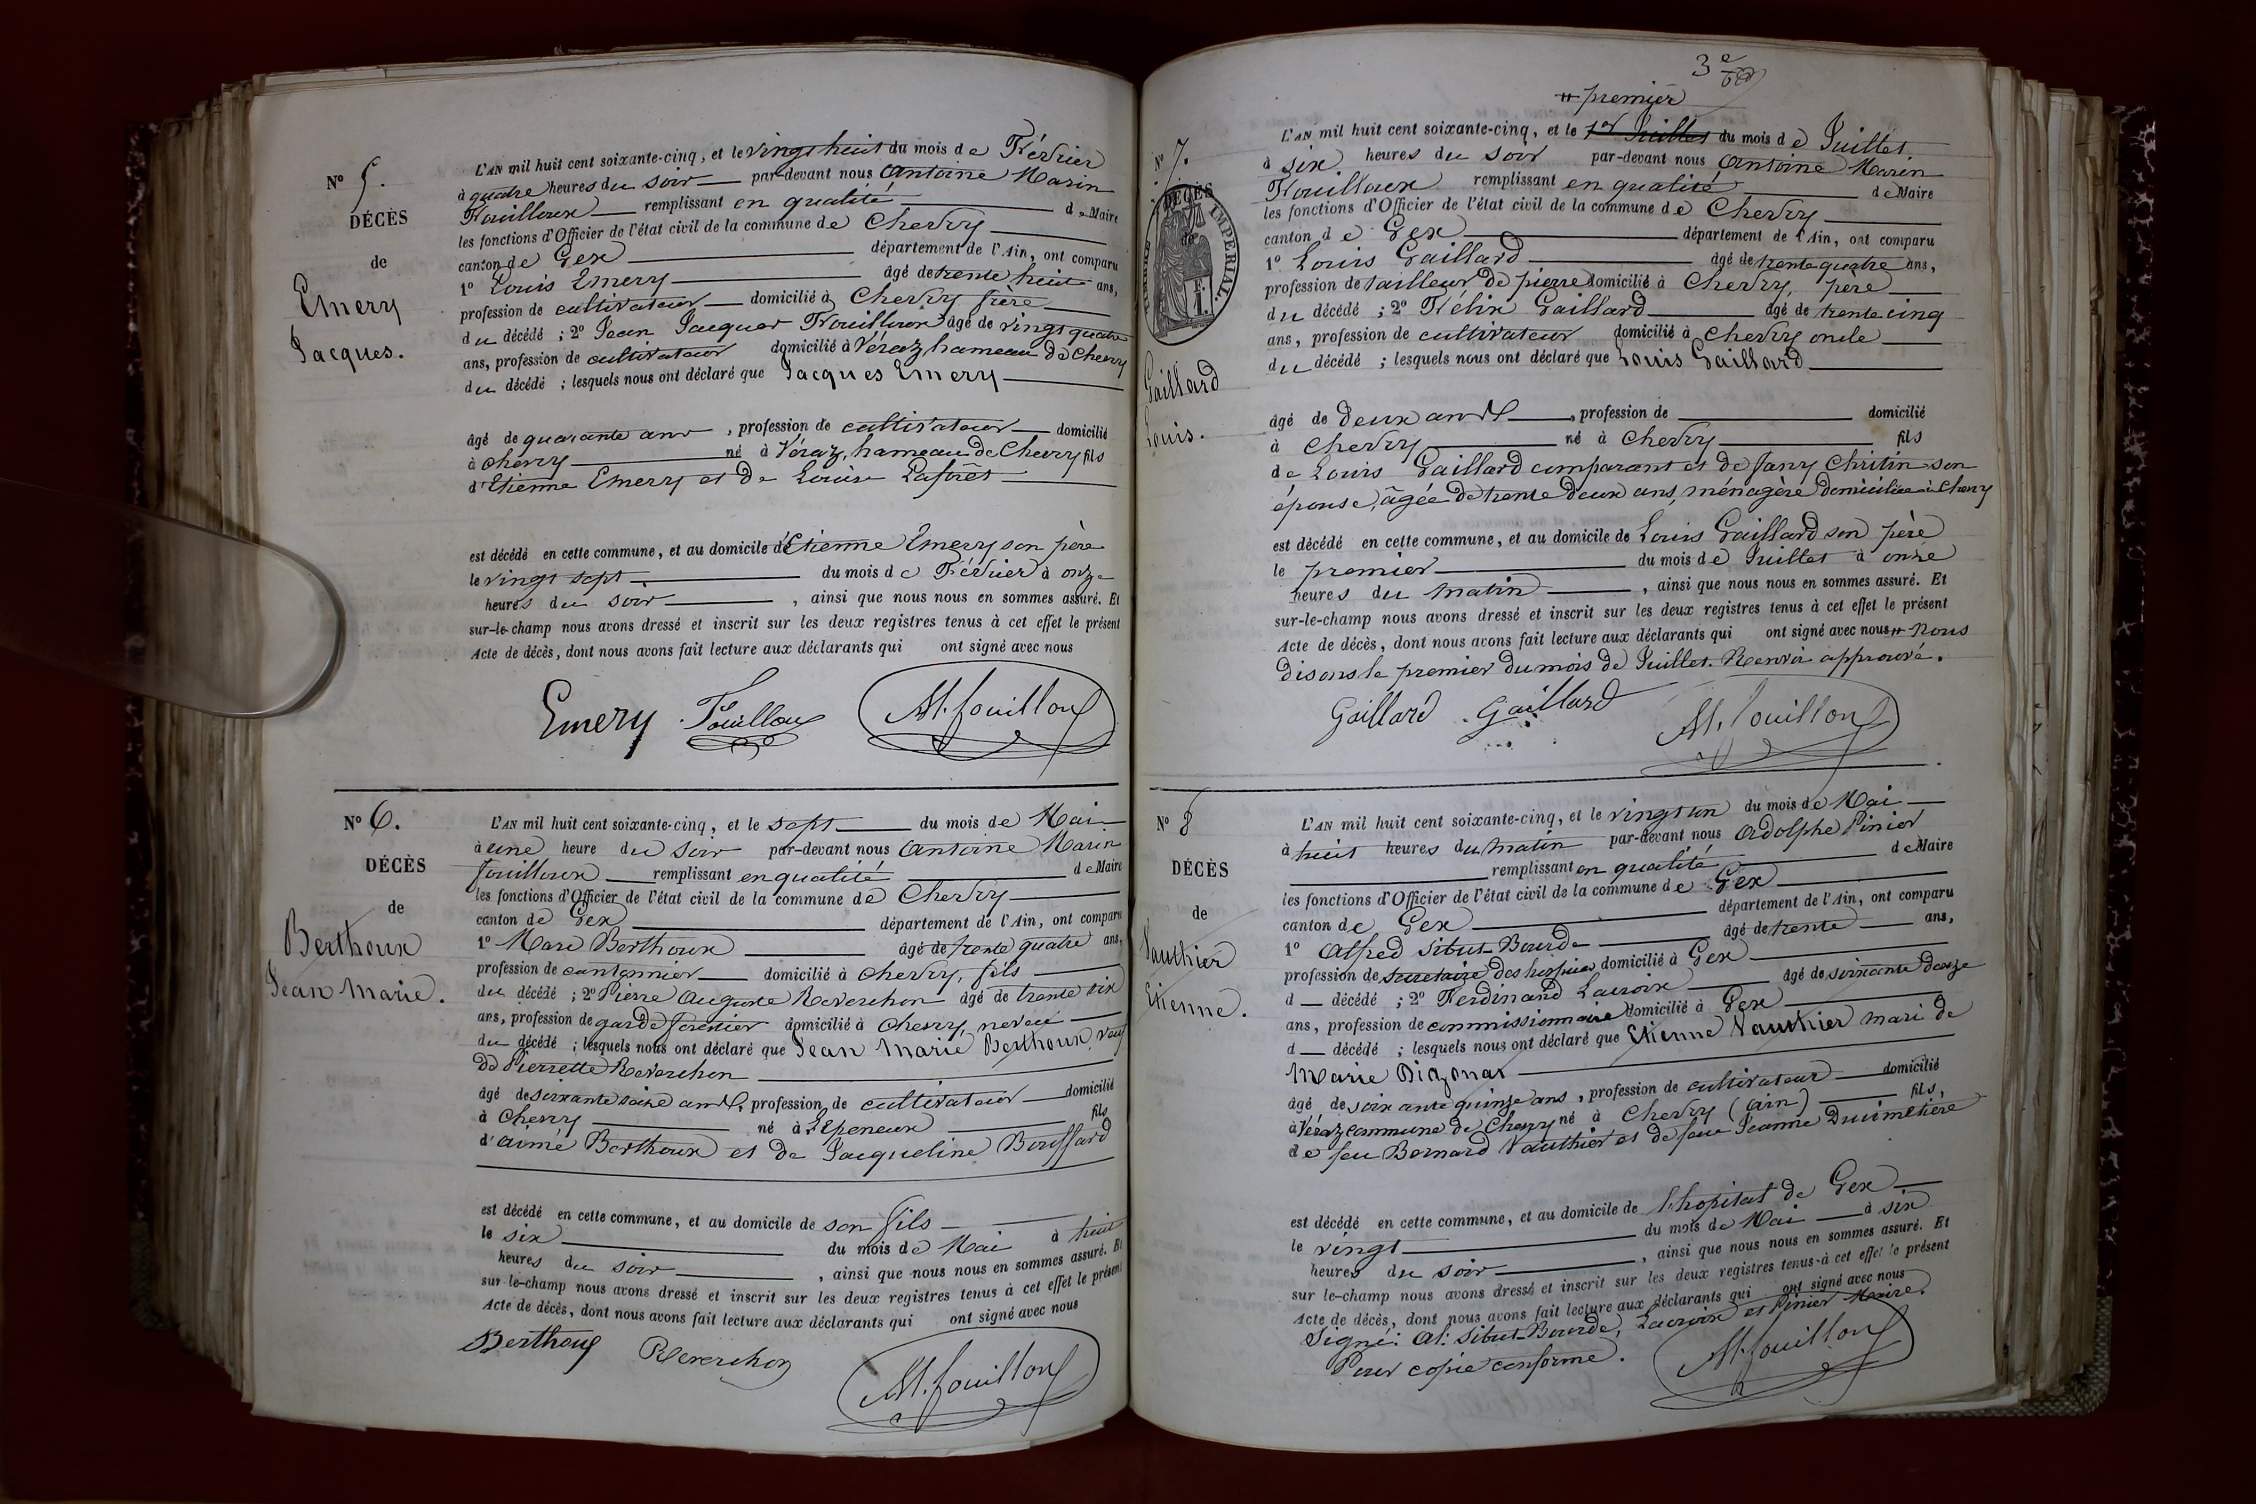 N° 5.
DÉCÈS
de
Emery
Jacques.
L'AN mil huit cent soixante-cinq, et le vingt huit du mois de Février
à quatre heures du soir par-devant nous Antoine Marin
Fouilloux remplissant en qualité de Maire
les fonctions d'Officier de l'état civil de la commune de Chevry
canton de Gex département de l'Ain, ont comparu
1° Louis Emery âgé de trente huit ans,
profession de cultivateur domicilié à Chevry frère
du décédé ; 2° Jean Jacques Fouilloux âgé de vingt quatre
ans, profession de cultivateur domicilié à Véraz hameau de Chevry
du décédé ; lesquels nous ont déclaré que Jacques Emery
âgé de quarante ans, profession de cultivateur domicilié
à Chevry né à Véraz, hameau de Chevry fils
d'Etienne Emery et de Louise Laforêt
est décédé en cette commune, et au domicile d'Etienne Emery son père
le vingt sept du mois de Février à onze
heures du soir, ainsi que nous nous en sommes assuré. Et
sur-le-champ nous avons dressé et inscrit sur les deux registres tenus à cet effet le présent
Acte de décès, dont nous avons fait lecture aux déclarants qui ont signé avec nous
Emery Fouilloux AM. fouilloux
N° 6.
DÉCÈS
de
Berthoux
Jean Marie.
L'AN mil huit cent soixante-cinq, et le sept du mois de Mai
à une heure du soir par-devant nous Antoine Marin
fouilloux remplissant en qualité de Maire
les fonctions d'Officier de l'état civil de la commune de Chevry
canton de Gex département de l'Ain, ont comparu
1° Marc Berthoux âgé de trente quatre ans,
profession de cantonnier domicilié à Chevry, fils
du décédé ; 2° Pierre Auguste Reverchon âgé de trente six
ans, profession de garde forestier domicilié à Chevry, neveu
du décédé ; lesquels nous ont déclaré que Jean Marie Berthoux, veuf
de Pierrette Reverchon
âgé de soixante seize ans, profession de cultivateur domicilié
à Chevry né à L'Epeneux fils
d'aimé Berthoux et de Jacqueline Bouffard
est décédé en cette commune, et au domicile de son fils
le six du mois de Mai à huit
heures du soir, ainsi que nous nous en sommes assuré. Et
sur-le-champ nous avons dressé et inscrit sur les deux registres tenus à cet effet le présent
Acte de décès, dont nous avons fait lecture aux déclarants qui ont signé avec nous
Berthoux Reverchon AM. fouilloux
3e
# premier
N° 7.
DÉCÈS
de
TIMBRE IMPÉRIAL.
Gaillard
Louis.
L'AN mil huit cent soixante-cinq, et le 1er Juillet du mois de Juillet
à six heures du soir par-devant nous Antoine Marin
Fouilloux remplissant en qualité de Maire
les fonctions d'Officier de l'état civil de la commune de Chevry
canton de Gex département de l'Ain, ont comparu
1° Louis Gaillard âgé de trente quatre ans,
profession de tailleur de pierre domicilié à Chevry, père
du décédé ; 2° Félix Gaillard âgé de trente cinq
ans, profession de cultivateur domicilié à Chevry oncle
du décédé ; lesquels nous ont déclaré que Louis Gaillard
âgé de deux ans, profession de domicilié
à Chevry né à Chevry fils
de Louis Gaillard comparant et de Jany Chritin son
épouse, âgée de trente deux ans, ménagère domiciliée à Chevry
est décédé en cette commune, et au domicile de Louis Gaillard son père
le premier du mois de Juillet à onze
heures du matin, ainsi que nous nous en sommes assuré. Et
sur-le-champ nous avons dressé et inscrit sur les deux registres tenus à cet effet le présent
Acte de décès, dont nous avons fait lecture aux déclarants qui ont signé avec nous # nous
disons le premier du mois de Juillet. Renvoi approuvé.
Gaillard Gaillard AM. fouilloux
N° 8
DÉCÈS
de
Vauthier
Etienne.
L'AN mil huit cent soixante-cinq, et le vingt un du mois de Mai
à huit heures du matin par-devant nous Adolphe Pinier
remplissant en qualité de Maire
les fonctions d'Officier de l'état civil de la commune de Gex
canton de Gex département de l'Ain, ont comparu
1° Alfred Sibut-Bourde âgé de trente ans,
profession de secrétaire des hospices domicilié à Gex
d décédé ; 2° Ferdinand Lacroix âgé de soixante douze
ans, profession de commissionnaire domicilié à Gex
d décédé ; lesquels nous ont déclaré que Etienne Vauthier mari de
Marie
âgé de soixante quinze ans, profession de cultivateur domicilié
à Véraz commune de Chevry né à Chevry (ain) fils,
de feu Bernard Vauthier et de feue Jeanne
est décédé en cette commune, et au domicile de l'hopital de Gex
le vingt du mois de Mai à six
heures du soir, ainsi que nous nous en sommes assuré. Et
sur le-champ nous avons dressé et inscrit sur les deux registres tenus à cet effet le présent
Acte de décès, dont nous avons fait lecture aux déclarants qui ont signé avec nous
Signé: Al: Sibut-Bourde, Lacroix et Pinier Maire.
Pour copie conforme. AM. fouilloux